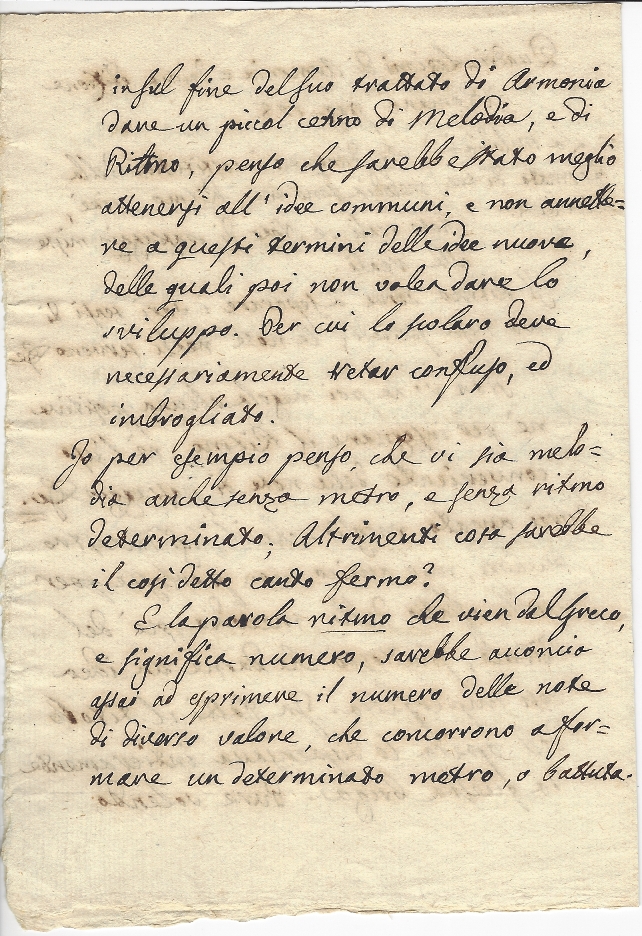 insul fine del suo trattato di Armonia
dare un piccol cenno di Melodia, e di
Ritmo, penso che sarebbe stato meglio
attenersi all' idee communi, e non annette=
re a questi termini delle idee nuove,
delle quali poi non volea dare lo
sviluppo. Per cui lo scolaro deve
necessariamente restar confuso, ed
imbrogliato.
Io per esempio penso, che vi sia melo=
dia anche senza metro, e senza ritmo
determinato; Altrimenti cosa sarebbe
il così detto canto fermo?
E la parola ritmo che vien dal Greco,
e significa numero, sarebbe acconcia
assai ad esprimere il numero delle note
di diverso valore, che concorrono a for=
mare un determinato metro, o battuta.